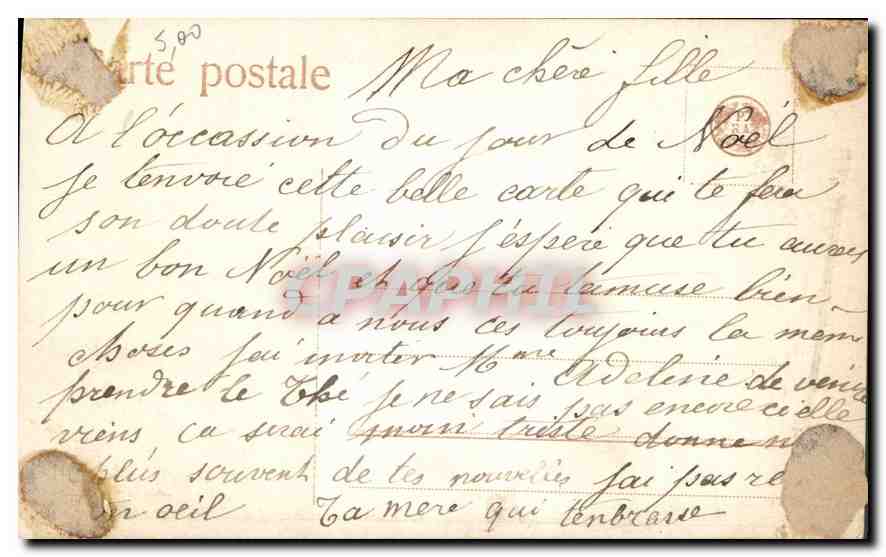 5,00
Carte postale
Ma chére fille
A l'óccassion du jour de Noël
je tenvoie cette belle carte qui te fera
son doute plaisir j'éspere que tu auras
un bon Noël et que tu tamuse bien
pour quand a nous ces toujours la mêm
choses j'ai inviter Mme Adeleine de venir
prendre le Thé je ne sais pas encore ci elle
viens ca serai moin triste donne m
plus souvent de tes nouvelles j'ai pas re
oeil Ta mere qui tenbrasse
CPAPHIL